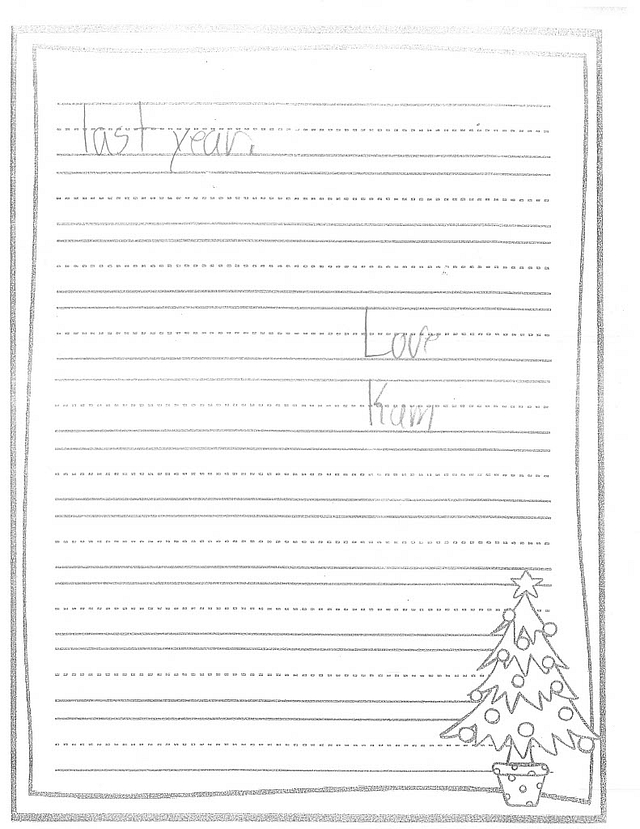 last year.
Love
Kam